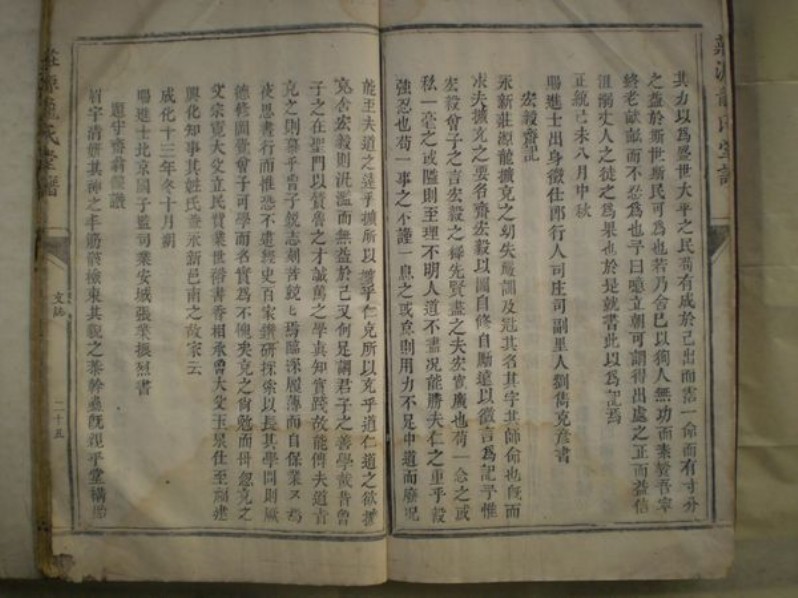 其力以為盛世太平之民苟有成於己出而霑一命而有寸分
之益於斯世斯民可為也若乃舍己以狥人無功而素餐吾寧
終老畎畝而不忍為也予曰噫立朝可謂得出處之正而益信
沮溺丈人之徒之為果也於是就書此以為記焉
正統己未八月中秋
賜進士出身徵仕郎行人司左司副里人劉雋克彥書
宏毅齋記
永新莊源龍擴克之幼失嚴訓及冠其名其字其師命也既而
求夫擴充之要名齋宏毅以圖自修自勵遠以徵言為記予惟
宏毅曾子之言宏毅之條先賢盡之夫宏寬廣也苟一念之或
私一毫之或隘則至理不明人道不盡况能勝夫仁之重乎毅
強忍也苟一事之不謹一息之或怠則用力不足中道而廢况
能至夫道之遠乎擴所以擴乎仁克所以克乎道仁道之欲擴
克舍宏毅則汎濫而無益於己又何足謂君子之善學哉昔曾
子之在聖門以質魯之才誠篤之學真知實踐故能傳夫道吉
克之則慕乎曾子銳志刻苦兢兢焉臨深履薄而自保業業焉
夜思晝行而惟恐不逮經史百家鑽研探索以長其學問則厥
德修罔覺曾子可學而名實為不愧矣克之尚勉而毋忽克之
父宗憲大父立民質業世脩書香相承曾大父玉泉仕至福建
興化知事其姓氏益永新邑南之故家云
成化十三年冬十月朔
賜進士北京國子監司業安城張業振烈書
題守齋翁像讚
眉宇清
二十五